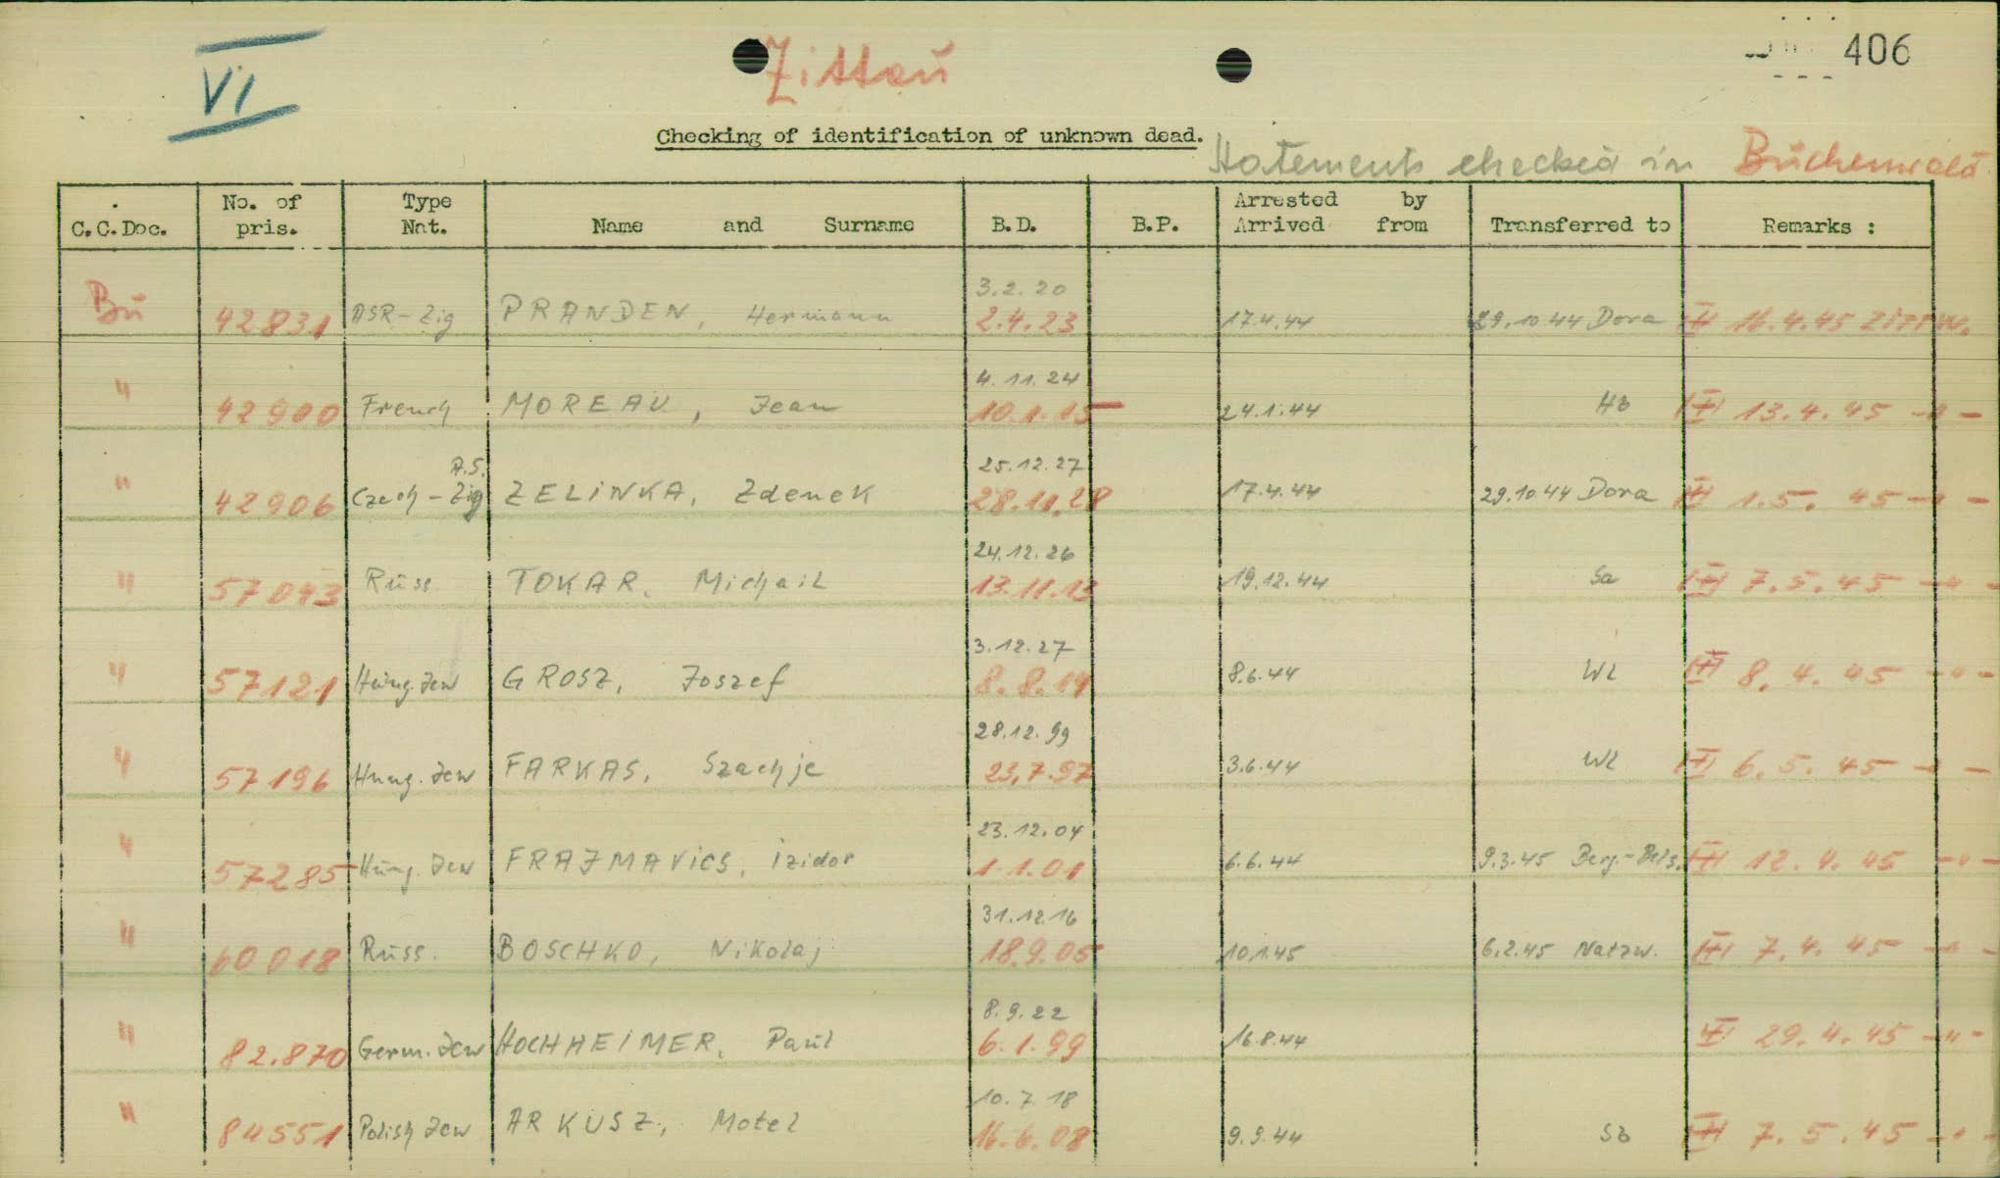 VI
Zittau
406
Checking of identification of unknown dead.
Statements checked in Buchenwald
C.C.Doc. No. of pris. Type Nat. Name and Surname B.D. B.P. Arrested by Arrived from Transferred to Remarks :
3.2.20
Bu 42831 ASR-Zig PRANDEN, Hermann 2.4.23 17.4.44 29.10.44 Dora 16.4.45
4.11.24
" 42900 French MOREAU, Jean 10.1.15 24.1.44 Hb 13.4.45 -"-
A.S. 25.12.27
" 42906 Czech-Zig ZELINKA, Zdenek 28.11.28 17.4.44 29.10.44 Dora 1.5.45 -"-
24.12.26
" 57093 Russ. TOKAR, Michail 13.11.13 19.12.44 Sa 7.5.45 -"-
3.12.27
" 57121 Hung. Jew GROSZ, Joszef 8.8.19 8.6.44 Wl 8.4.45 -"-
28.12.99
" 57196 Hung. Jew FARKAS, Szachje 23.7.97 3.6.44 Wl 6.5.45 -"-
23.12.04
" 57285 Hung. Jew FRAJMAVICS, Izidor 1.1.01 6.6.44 9.3.45 Berg.-Bels. 12.4.45 -"-
31.12.16
" 60018 Russ. BOSCHKO, Nikolaj 18.9.05 10.1.45 6.2.45 Natzw. 7.4.45 -"-
8.9.22
" 82.870 Germ. Jew HOCHHEIMER, Paul 6.1.99 16.8.44 29.4.45 -"-
10.7.18
" 84551 Polish Jew ARKUSZ, Motel 16.6.08 9.9.44 Sb 7.5.45 -"-